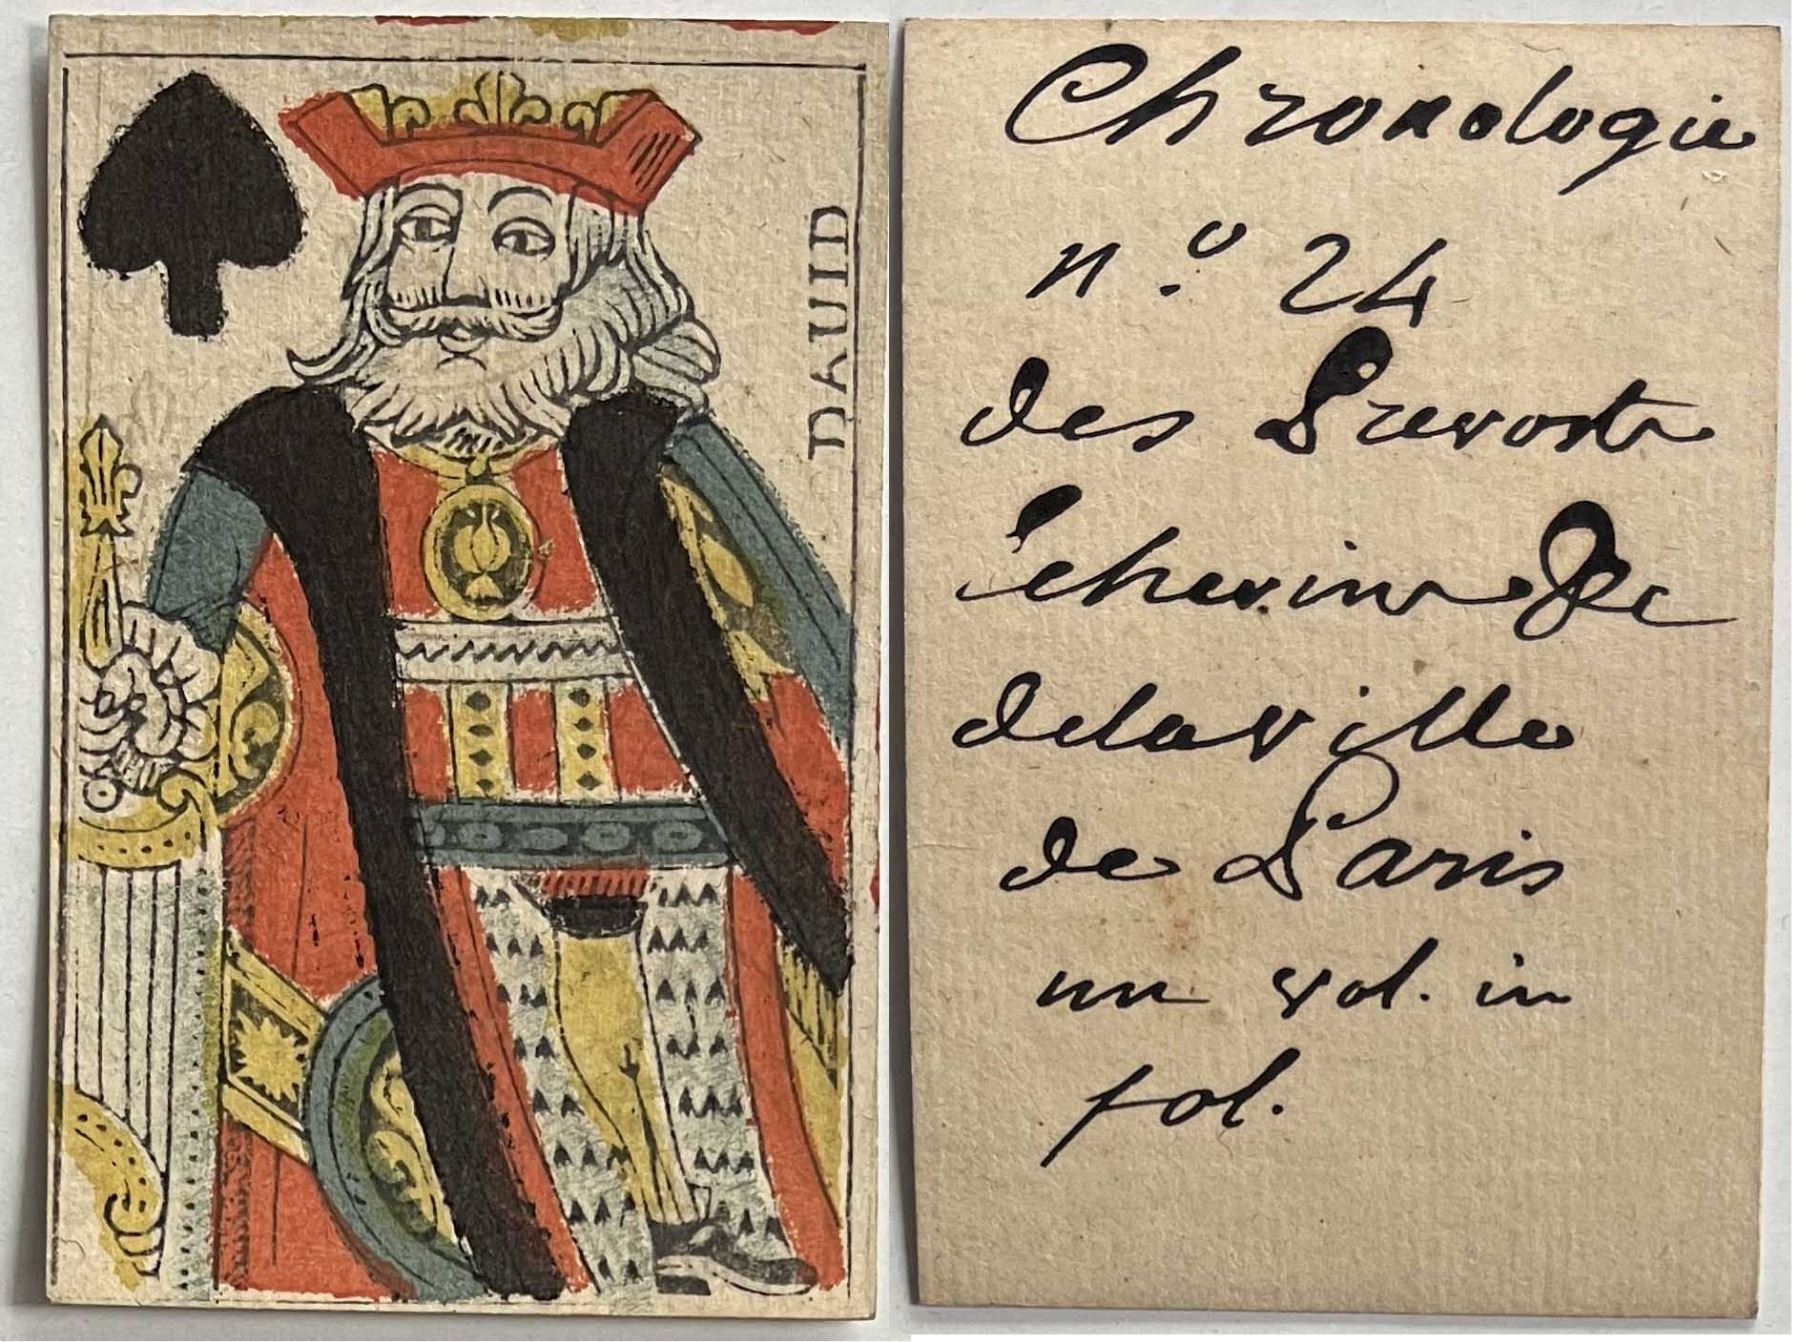 DAUID
Chronologie
n.o 24
des Prevost
Echevins &c
de la ville
de Paris
un vol. in
fol.